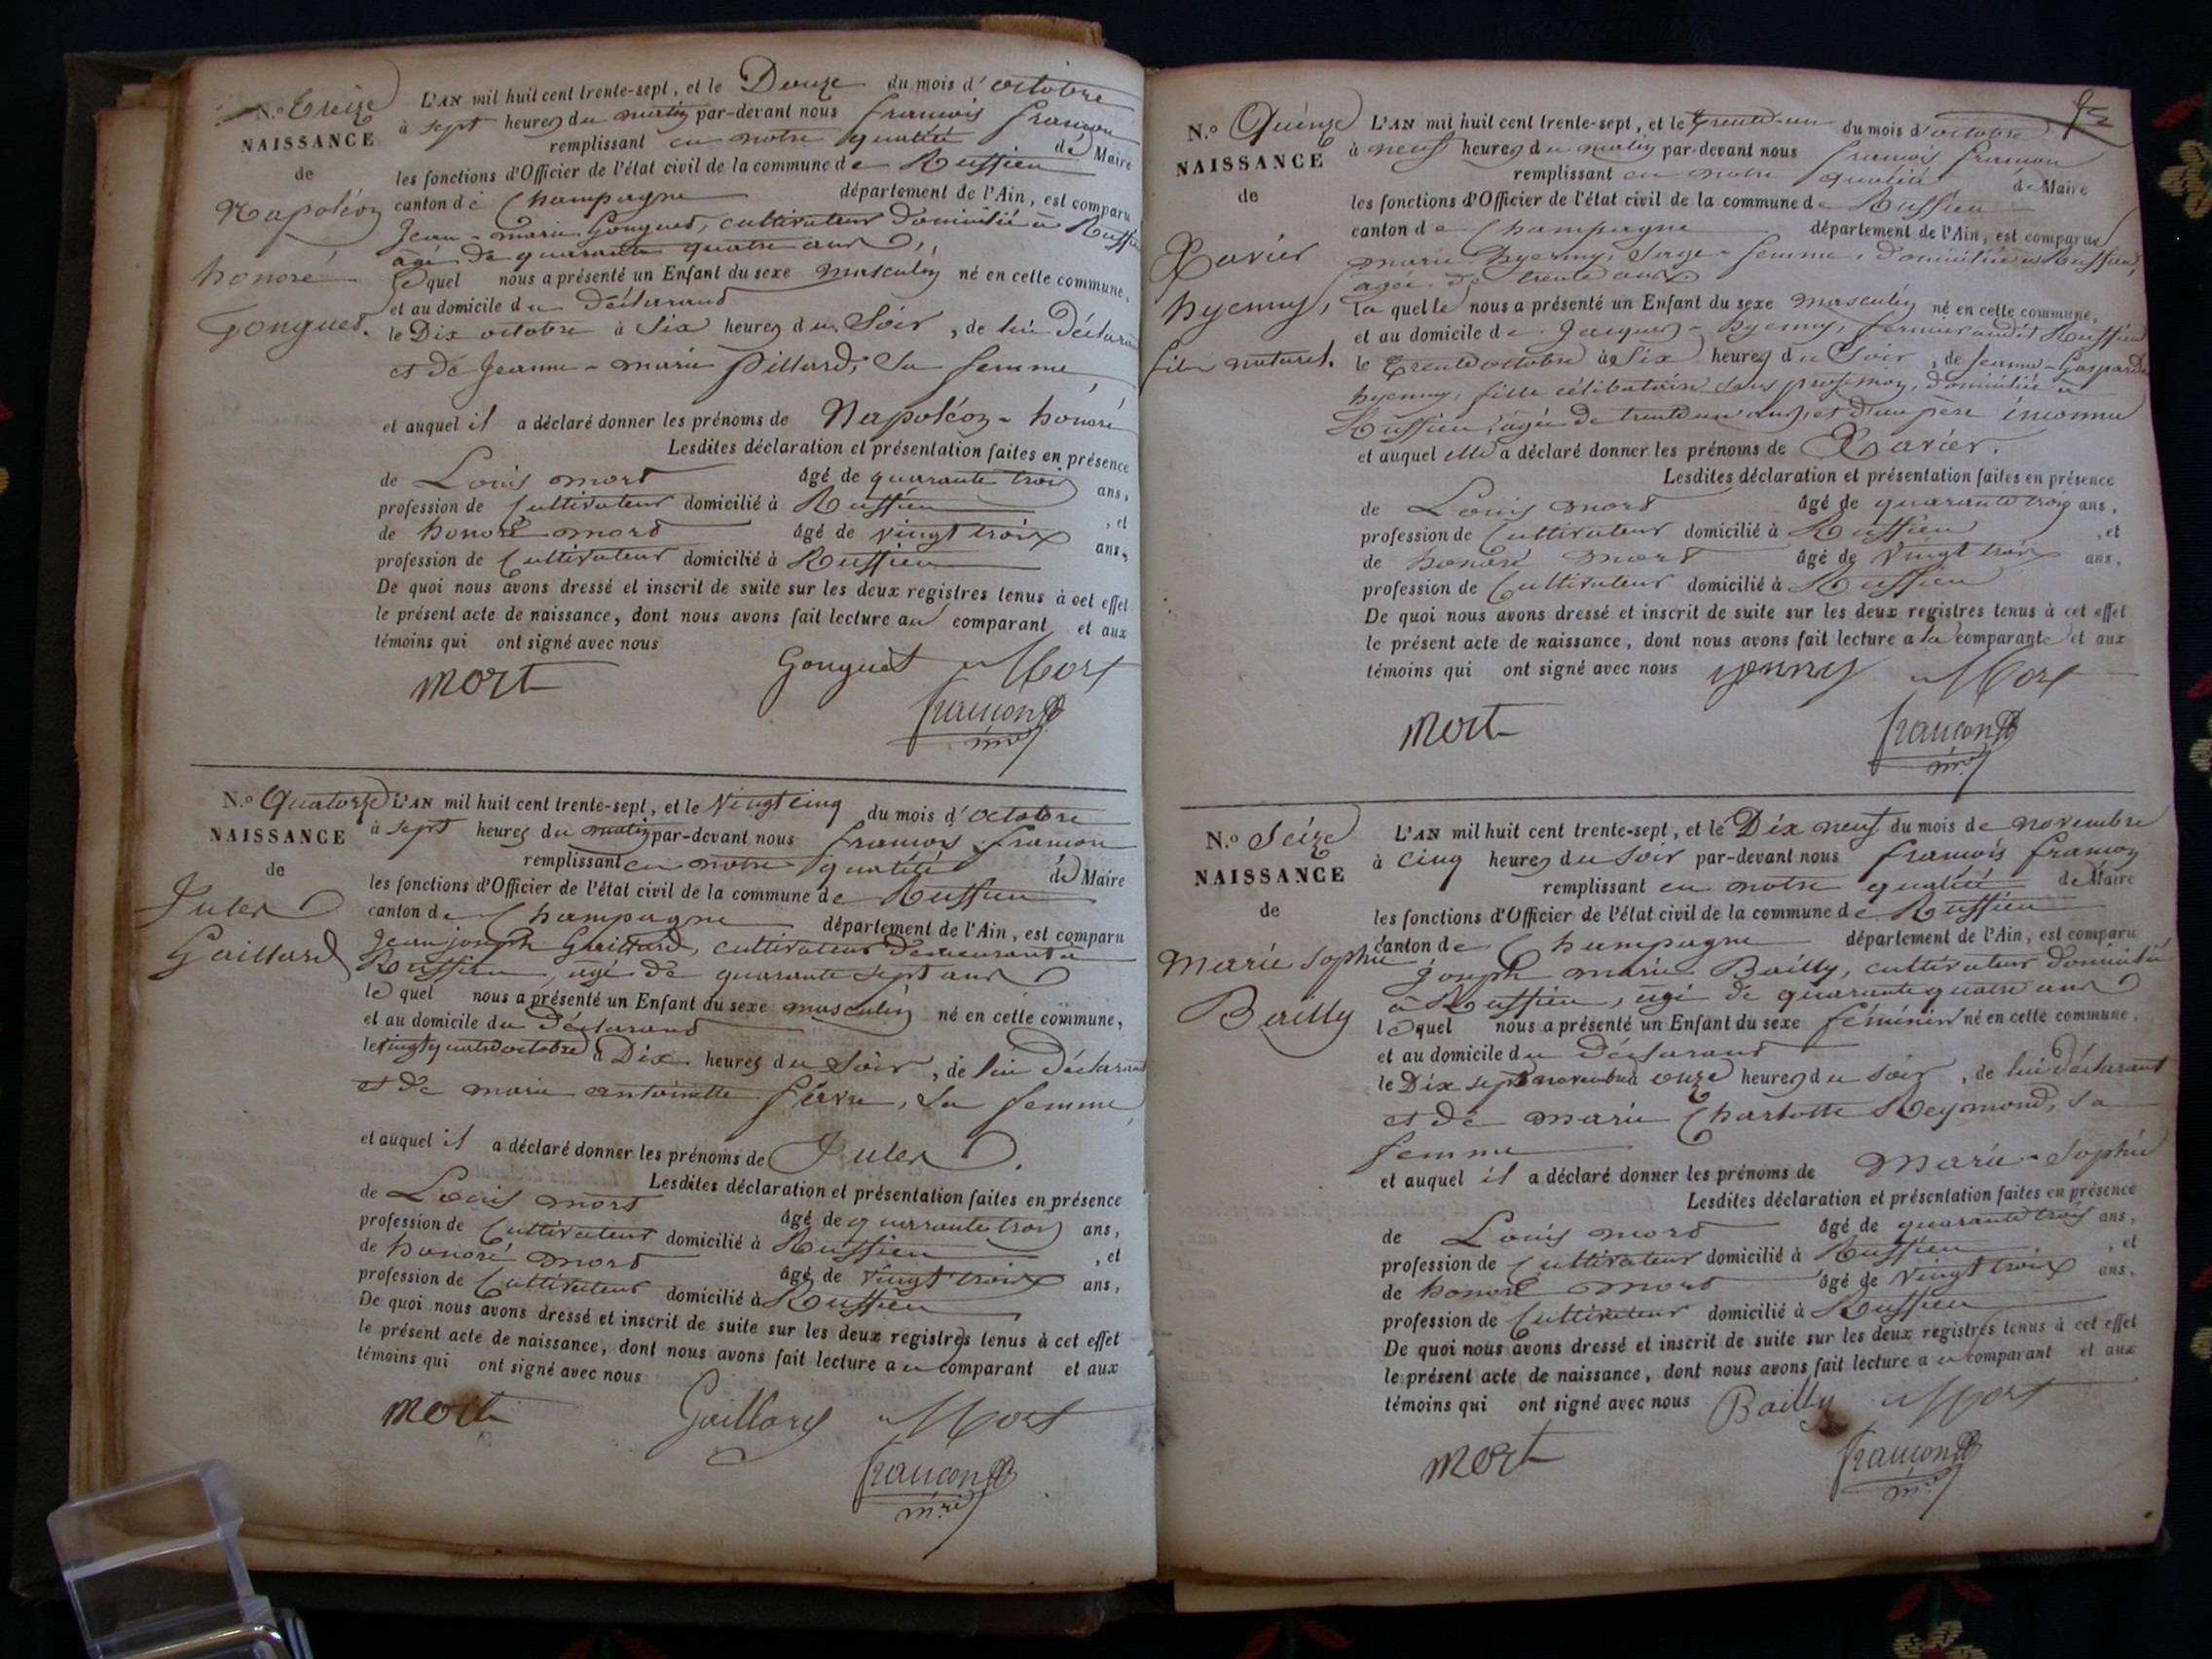 N.o Treize
NAISSANCE
de
Napoléon
honoré
Gonguet.
L'AN mil huit cent trente-sept, et le Douze du mois d'octobre
à sept heures du matin par-devant nous françois françon
remplissant en notre qualité de Maire
les fonctions d'Officier de l'état civil de la commune de Ruffieu
canton de Champagne département de l'Ain, est comparu
Jean-marie Gonguet, cultivateur domicilié à Ruffieu
âgé de quarante quatre ans
lequel nous a présenté un Enfant du sexe masculin né en cette commune,
et au domicile du déclarant
le Dix octobre à Six heures du Soir, de lui déclarant
et de Jeanne-marie Pillard, Sa femme,
et auquel il a déclaré donner les prénoms de Napoléon-honoré
Lesdites déclaration et présentation faites en présence
de Louis mort âgé de quarante trois ans,
profession de Cultivateur domicilié à Ruffieu , et
de honoré mort âgé de vingt trois ans,
profession de Cultivateur domicilié à Ruffieu
De quoi nous avons dressé et inscrit de suite sur les deux registres tenus à cet effet
le présent acte de naissance, dont nous avons fait lecture au comparant et aux
témoins qui ont signé avec nous
mort Gonguet Mort
francon
mre
N.o Quatorze
NAISSANCE
de
Jules
Gaillard
L'AN mil huit cent trente-sept, et le Vingt cinq du mois d'octobre
à sept heures du matin par-devant nous françois françon
remplissant en notre qualité de Maire
les fonctions d'Officier de l'état civil de la commune de Ruffieu
canton de Champagne département de l'Ain, est comparu
Jean joseph Gaillard, cultivateur demeurant à
Ruffieu, âgé de quarante sept ans
lequel nous a présenté un Enfant du sexe masculin né en cette commune,
et au domicile du déclarant
le vingt quatre octobre à Dix heures du Soir, de lui déclarant
et de marie antoinette , Sa femme
et auquel il a déclaré donner les prénoms de Jules.
Lesdites déclaration et présentation faites en présence
de Louis mort âgé de quarante trois ans,
profession de Cultivateur domicilié à Ruffieu , et
de honoré mort âgé de vingt trois ans,
profession de Cultivateur domicilié à Ruffieu
De quoi nous avons dressé et inscrit de suite sur les deux registres tenus à cet effet
le présent acte de naissance, dont nous avons fait lecture au comparant et aux
témoins qui ont signé avec nous
mort Gaillard Mort
francon
mre
N.o Quinze
NAISSANCE
de
Xavier
hyenny,
fils naturel.
L'AN mil huit cent trente-sept, et le Trente un du mois d'octobre
à neuf heures du matin par-devant nous françois françon
remplissant en notre qualité de Maire
les fonctions d'Officier de l'état civil de la commune de Ruffieu
canton de Champagne département de l'Ain, est comparue
marie hyenny, Sage-femme, domiciliée à Ruffieu,
âgée de trente ans
laquelle nous a présenté un Enfant du sexe masculin né en cette commune,
et au domicile de Jacques-hyenny, fermier audit Ruffieu
le Trente octobre à Six heures du Soir, de Jeanne-Gasparde
hyenny, fille célibataire sans profession, domiciliée à
Ruffieu, âgée de trente un ans, et d'un père inconnu
et auquel elle a déclaré donner les prénoms de Xavier.
Lesdites déclaration et présentation faites en présence
de Louis mort âgé de quarante trois ans,
profession de Cultivateur domicilié à Ruffieu , et
de honoré mort âgé de vingt trois ans,
profession de Cultivateur domicilié à Ruffieu
De quoi nous avons dressé et inscrit de suite sur les deux registres tenus à cet effet
le présent acte de naissance, dont nous avons fait lecture à la comparante et aux
témoins qui ont signé avec nous yenny Mort
mort francon
mre
N.o Seize
NAISSANCE
de
Marie Sophie
Bailly
L'AN mil huit cent trente-sept, et le Dix neuf du mois de novembre
à cinq heures du Soir par-devant nous françois françon
remplissant en notre qualité de Maire
les fonctions d'Officier de l'état civil de la commune de Ruffieu
canton de Champagne département de l'Ain, est comparu
joseph marie Bailly, cultivateur domicilié
à Ruffieu, âgé de quarante quatre ans
lequel nous a présenté un Enfant du sexe féminin né en cette commune,
et au domicile du déclarant
le Dix sept novembre à onze heures du Soir, de lui déclarant
et de marie Charlotte Reymond, sa
femme
et auquel il a déclaré donner les prénoms de Marie-Sophie
Lesdites déclaration et présentation faites en présence
de Louis mort âgé de quarante trois ans,
profession de Cultivateur domicilié à Ruffieu , et
de honoré mort âgé de vingt trois ans,
profession de Cultivateur domicilié à Ruffieu
De quoi nous avons dressé et inscrit de suite sur les deux registres tenus à cet effet
le présent acte de naissance, dont nous avons fait lecture au comparant et aux
témoins qui ont signé avec nous Bailly Mort
mort francon
mre